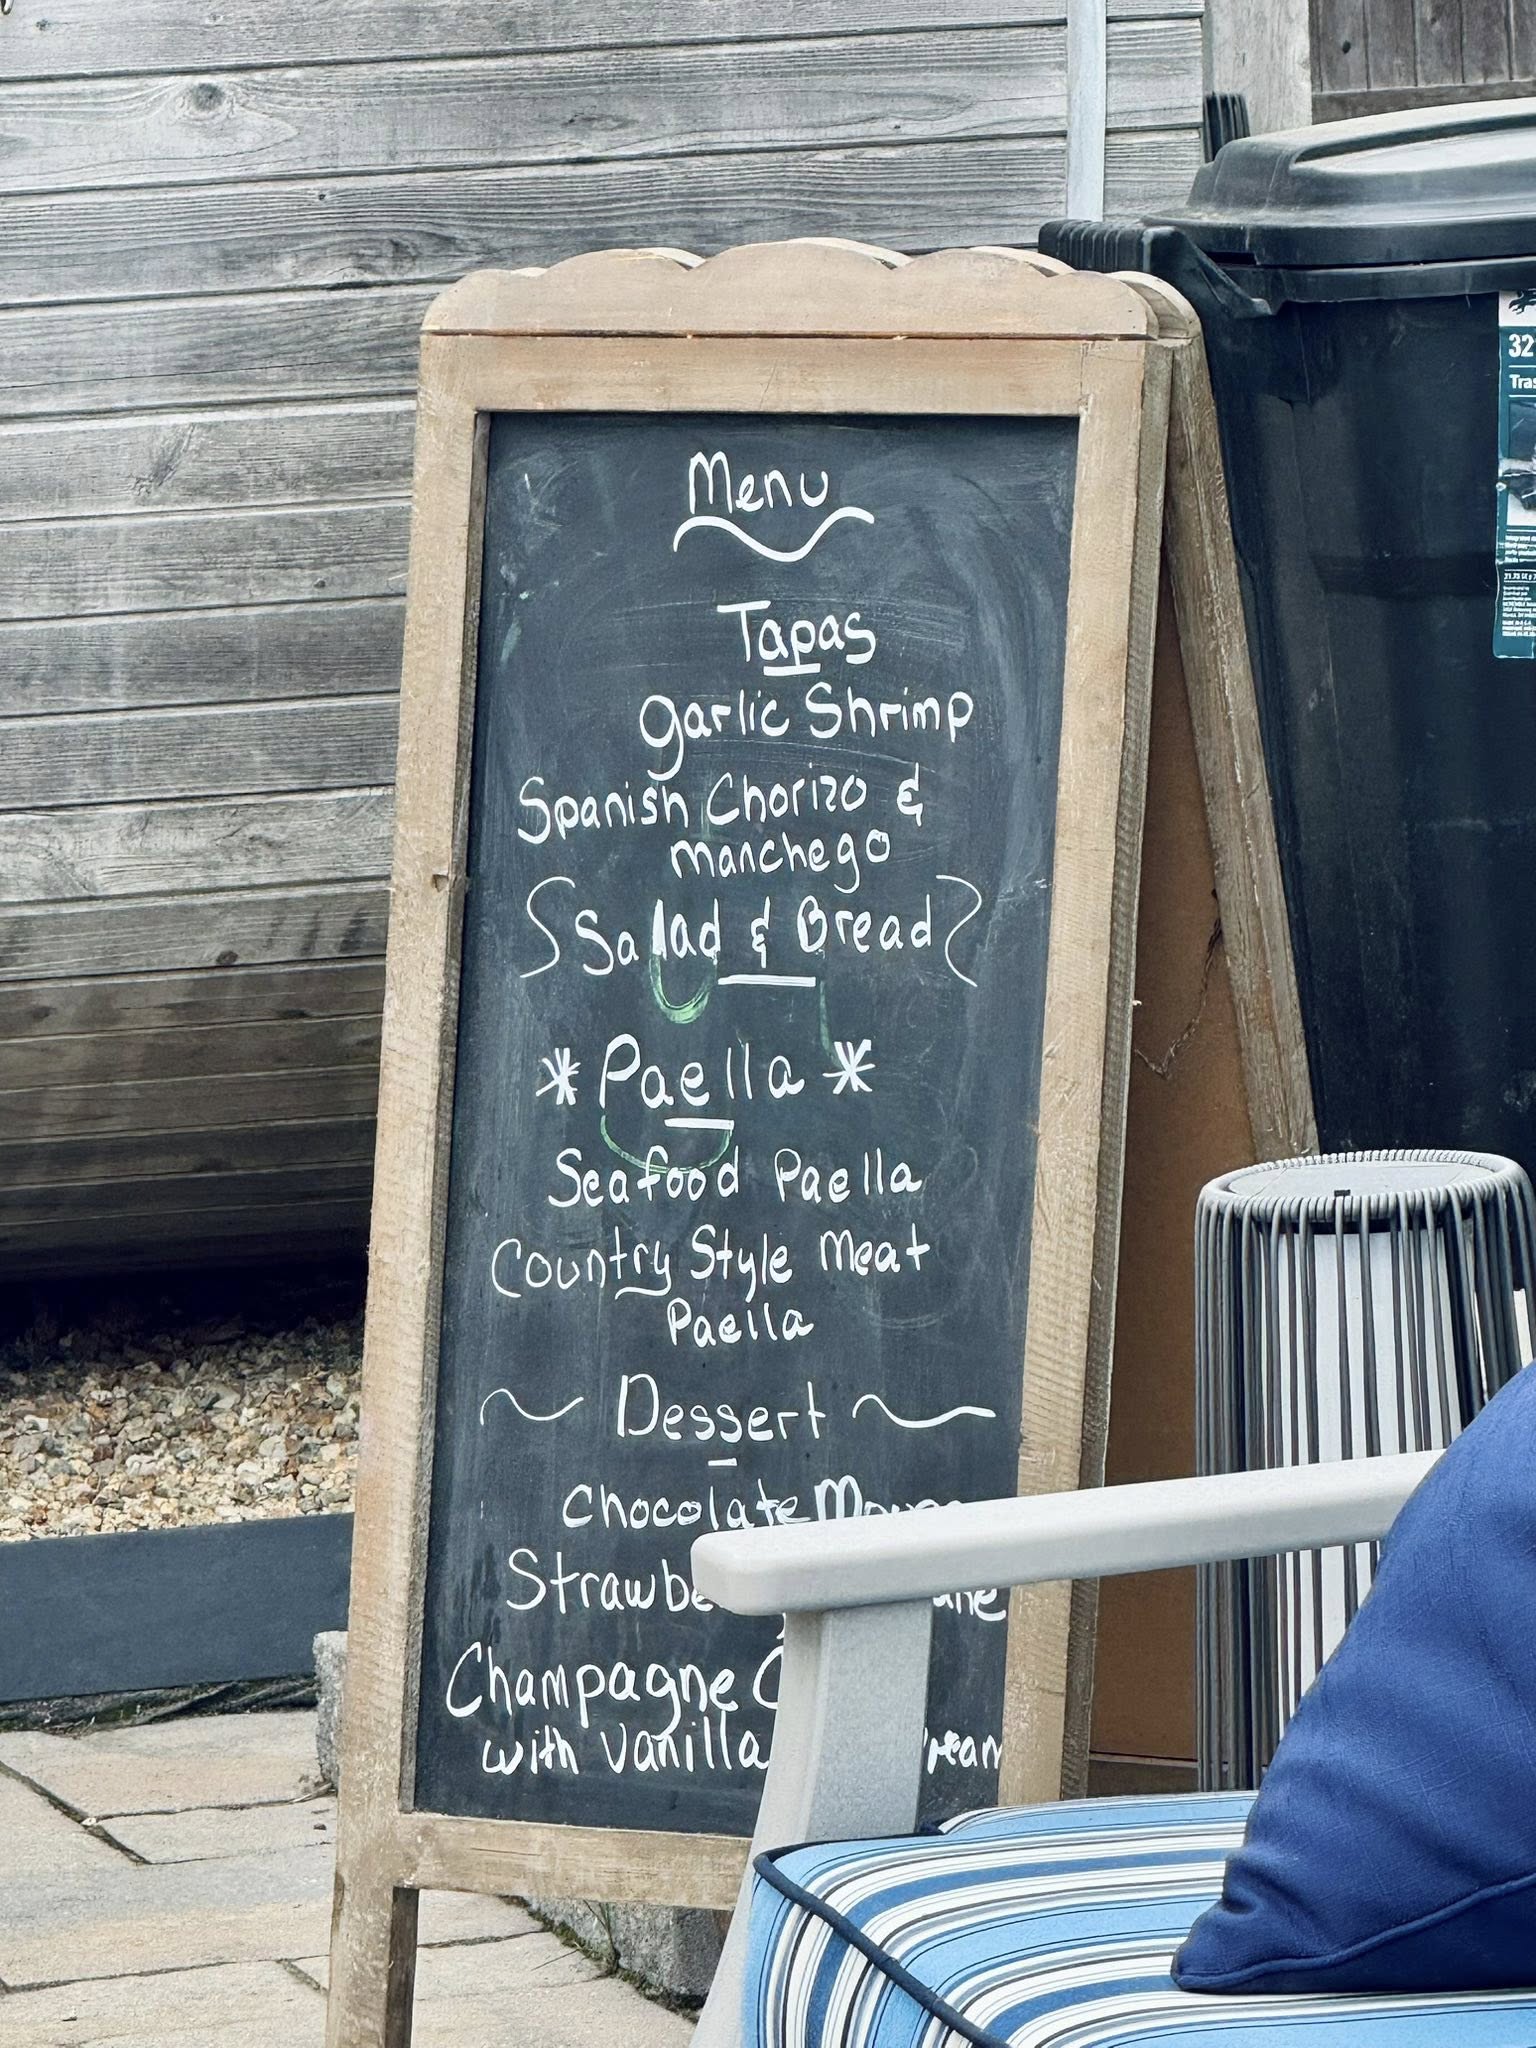 Menu
Tapas
garlic Shrimp
Spanish Chorizo &
Manchego
Salad & Bread
* Paella *
Seafood Paella
Country Style Meat
Paella
~ Dessert ~
Chocolate
Champagne
with Vanilla
32